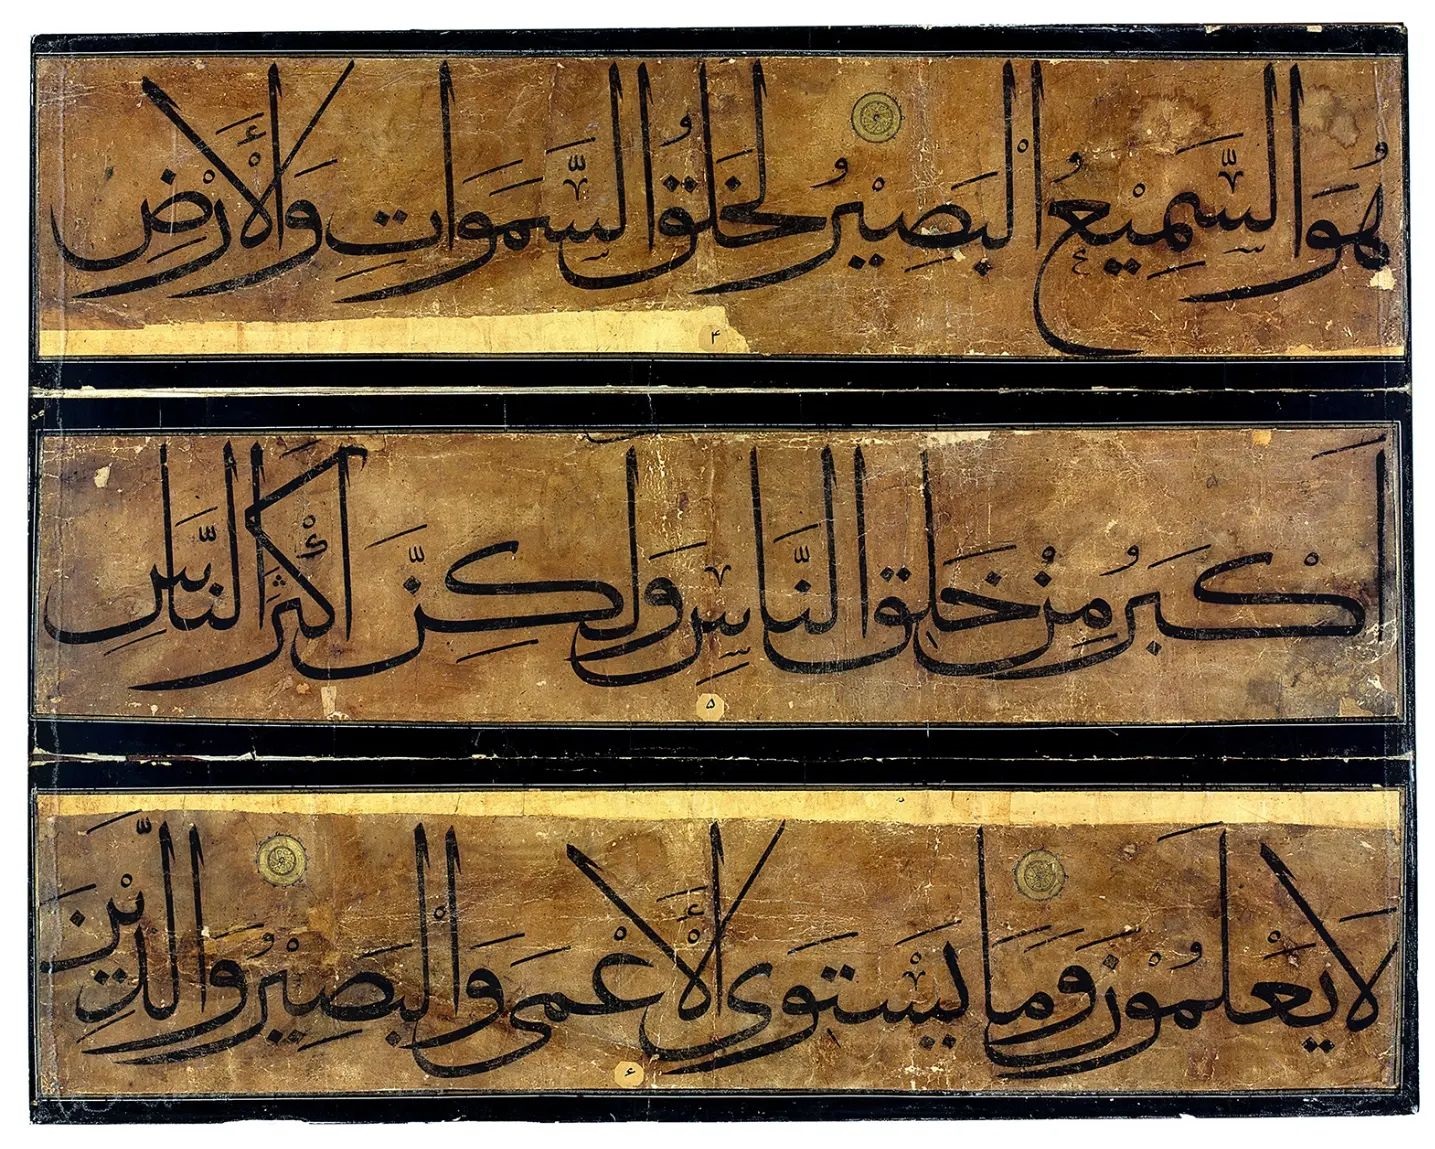 هُوَ السَّمِيْعُ الْبَصِيْرُ لَخَلْقُ السَّمَوَاتِ وَالْأَرْضِ
۴
اَكْبَرُ مِنْ خَلْقِ النَّاسِ وَلَكِنَّ أَكْثَرَ النَّاسِ
۵
لَا يَعْلَمُوْنَ وَمَا يَسْتَوِى الْأَعْمَى وَالْبَصِيْرُ وَالَّذِيْنَ
۶